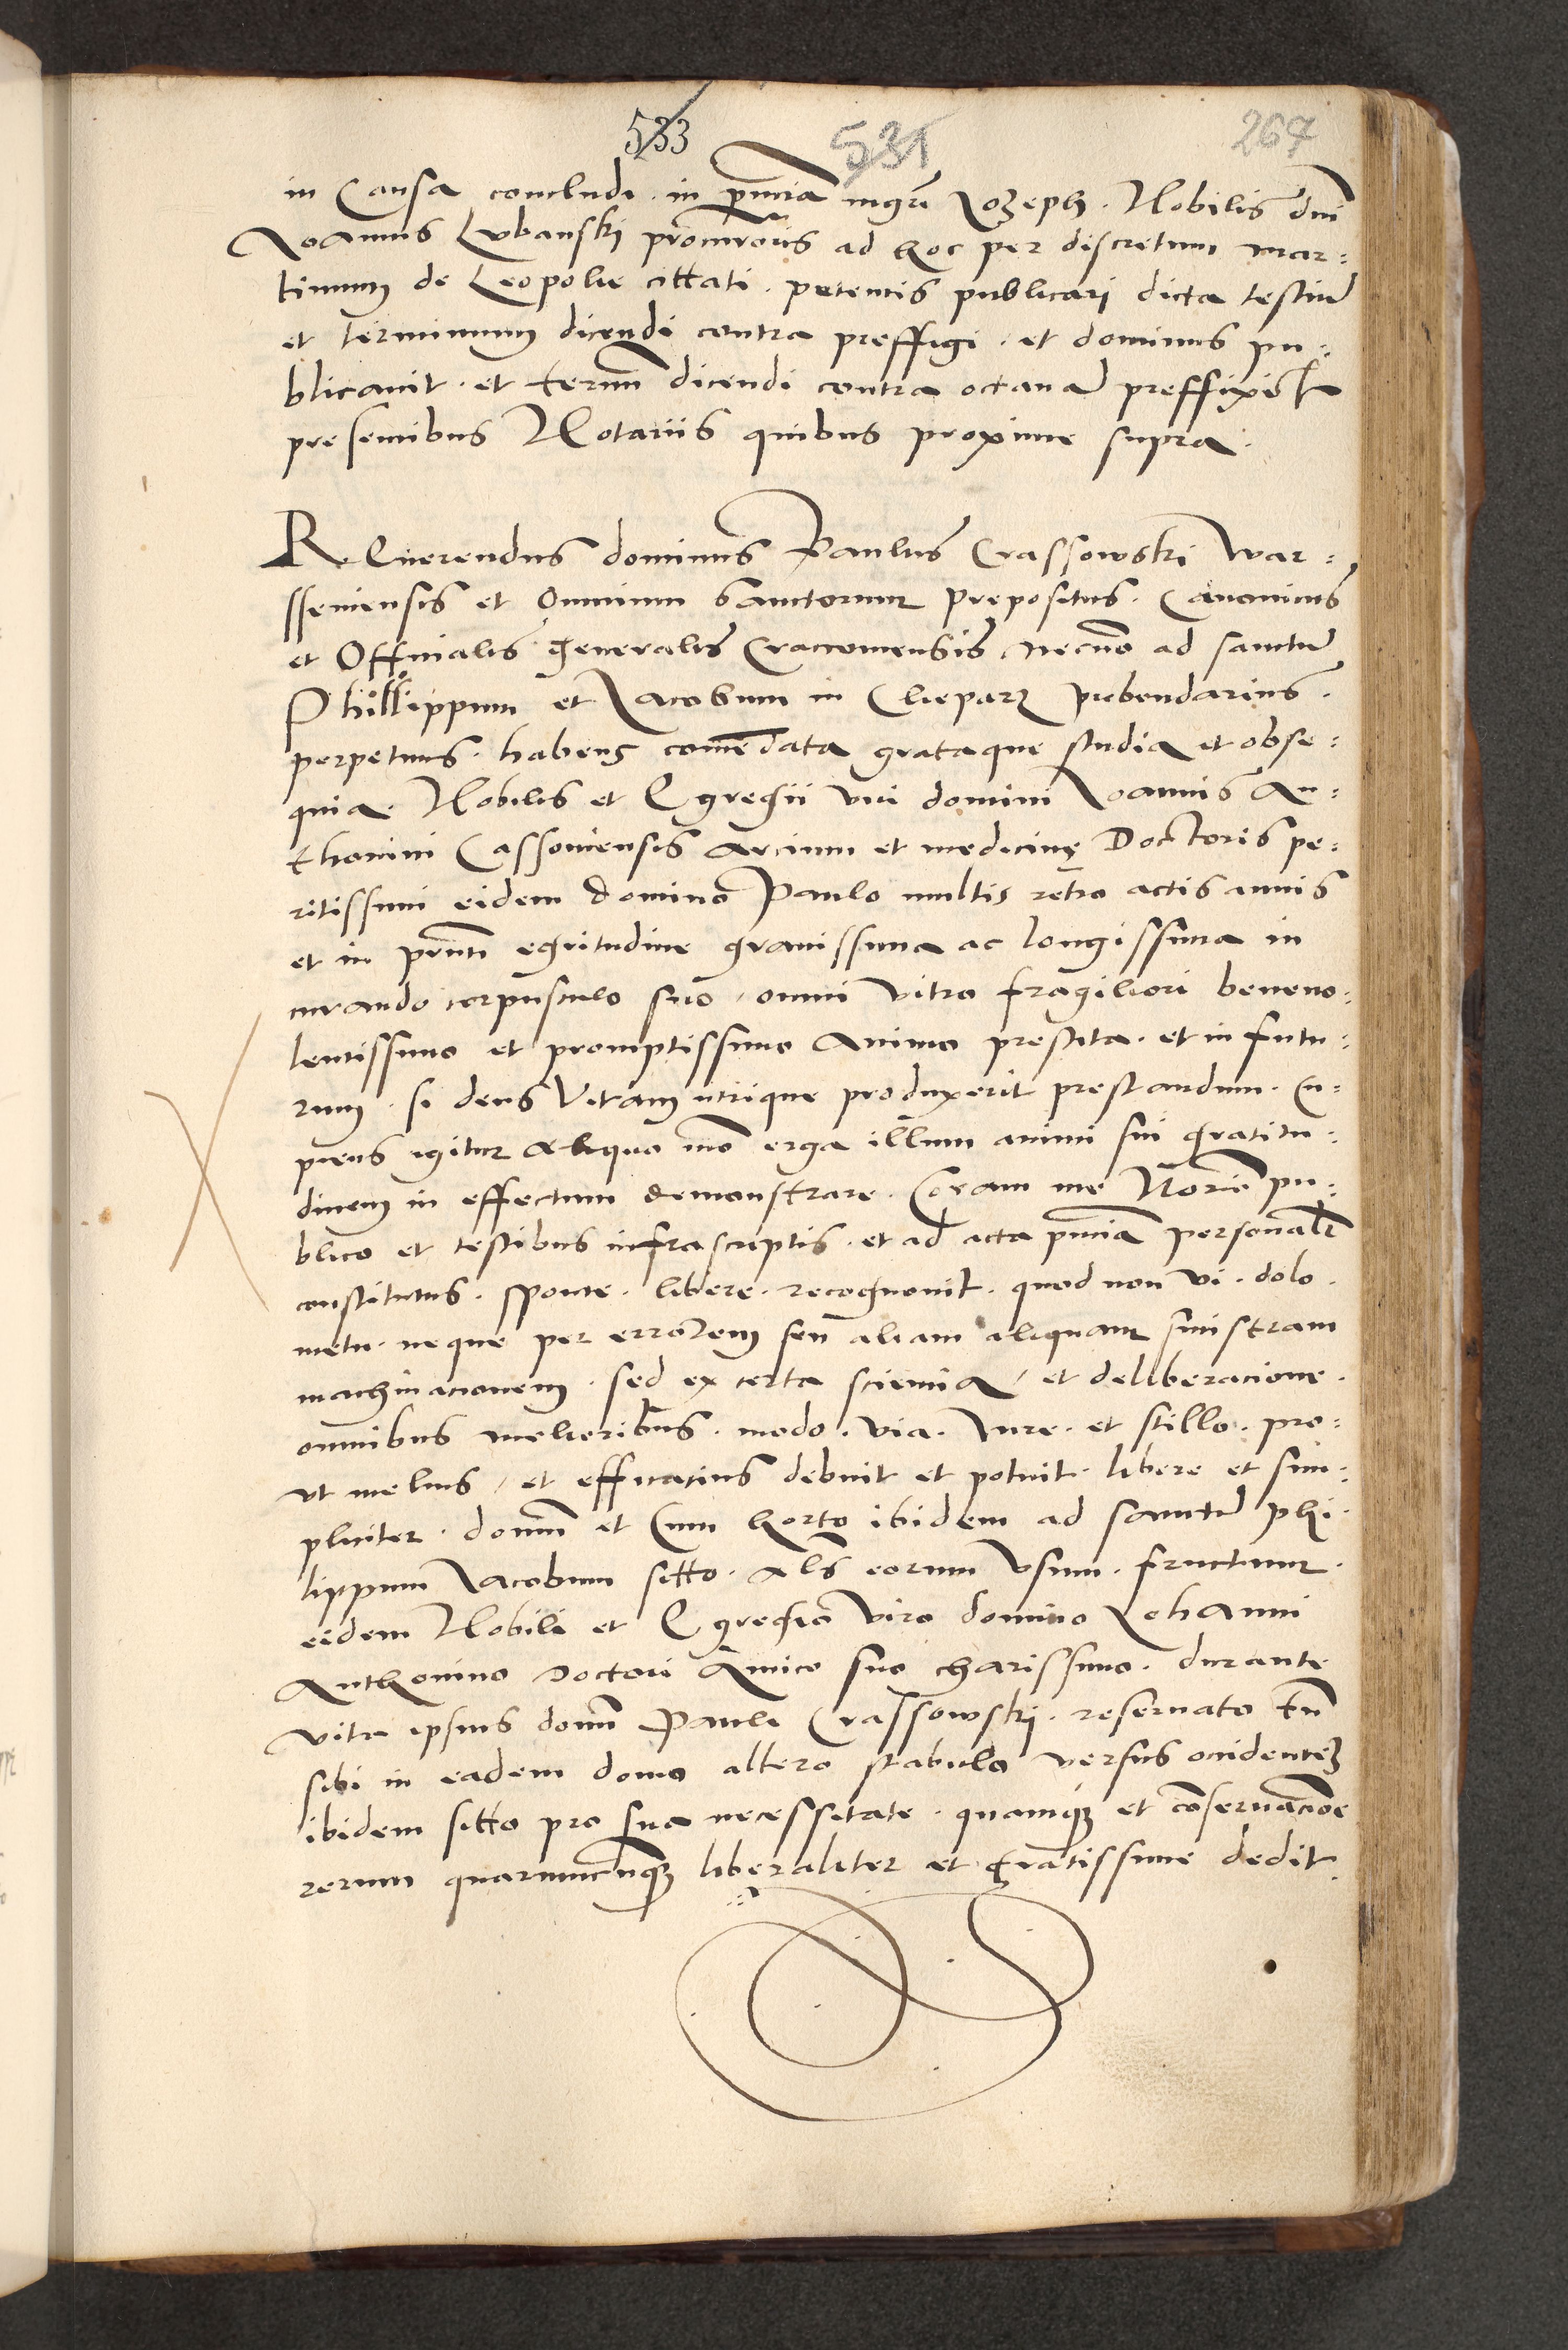 533 531 267
in Causa concludi · in pñcia mgri Jozeph · Nobilis dni
Joannis Lubanski procuroris ad hoc per discretum Mar:
tinum de Leopoli cittati · petentis publicari dicta testiũ
et terminum dicendi contra preffigi · et dominus pu:
blicauit · et termũ dicendi contra octauã preffixit
presentibus Notariis quibus proxime supra ·
REuerendus dominus Paulus Crassowski War:
sseuiensis et Omnium Sanctorum prepositus · Canonicus
et Officialis generalis Cracouiensis, necno ad sanctũ
Phillippum et Jacobum in Cleparz prebendarius ·
perpetuus · habens comẽdata grataque studia et obse:
quia · Nobilis et Egregii viri domini Joannis An:
thonini Cassouiensis Arcium et medicinę Doctoris pe:
ritissimi eidem domino Paulo multis retro actis annis
et in pñti egritudine grauissima ac longissima in
curando corpusculo suo · omni vitro fragiliori beneuo:
lentissimo et promptissimo Animo prestita · et in futu:
rum · si deus Vitam utrique produxerit prestandum · Cu:
piens igitur aliquo mõ erga illum animi sui gratitu:
dinem in effectum demonstrare · Coram me Norio pu:
blico et testibus infrascriptis · et ad acta pñcia personalr
constitutus · sponte · libere · recognouit · quod non vi · dolo ·
metu · neque per errorem seu aliam aliquam sinistram
machinacionem · sed ex certa sciencia / et deliberacione ·
omnibus melioribus · modo · via · Jure · et stillo · pro:
vt melius / et efficatius debuit et potuit · libere et sim:
pliciter · domũ et Cum horto ibidem ad sanctũ phi·
lippum Jacobum sitto · als eorum Vsum · fructum ·
eidem Nobili et Egregio viro domino Johanni
Anthonino Doctori Amico suo charissimo · durante
vita ipsius domĩ Pauli Crassowski · reseruato tñ
sibi in eadem domo altero stabulo versus occidentẽ
ibidem sitto pro sua necessitate · quamq et conseruacione
rerum quarumcunq liberaliter et gratissime dedit ·